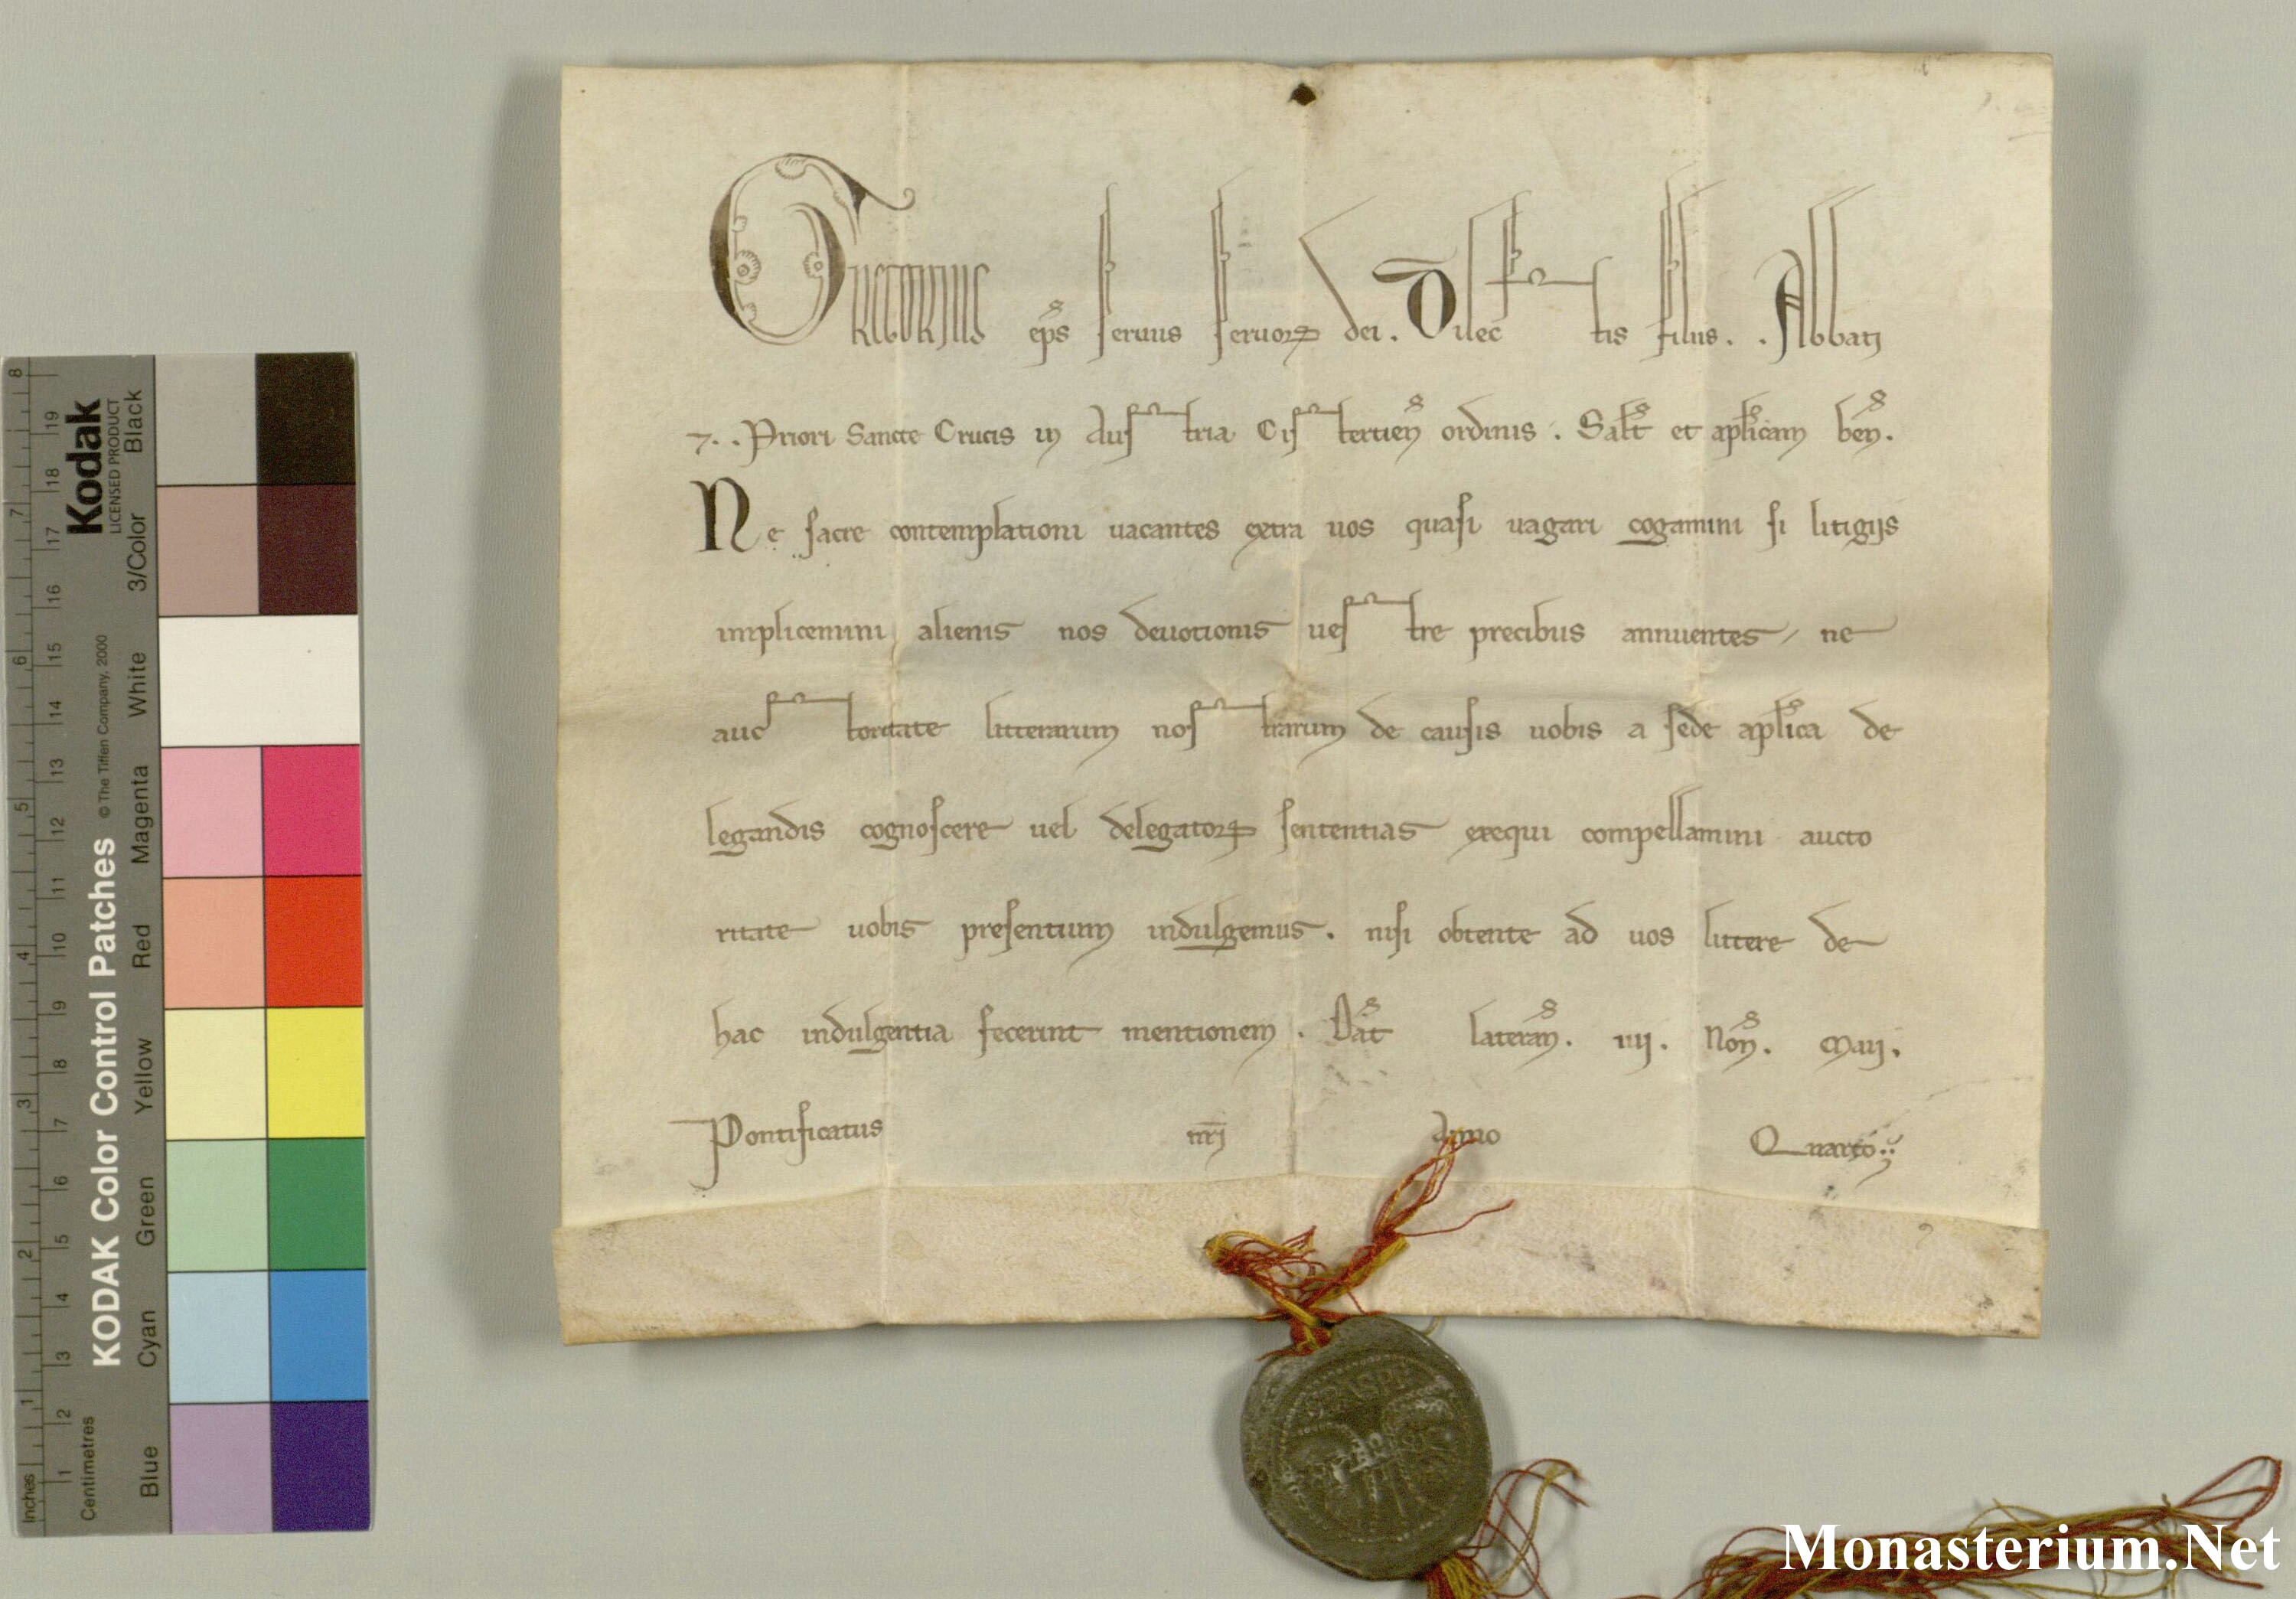 GREGORIUS ep̄s seruus seruoꝝ dei. Dilectis filiis. . Abbati
⁊ . . Priori Sancte Crucis in Austria Cistercień ordinis . Saƚt et apƚicam beń.
Ne sacre contemplationi uacantes extra uos quasi uagari cogamini si litigijs
implicemini alienis nos deuotionis uestre precibus annuentes / ne
auctoritate litterarum nostrarum de causis uobis a sede apƚica de
legandis cognoscere uel delegatoꝝ sententias exequi compellamini aucto
ritate uobis presentium indulgemus . nisi obtente ad uos littere de
hac indulgentia fecerint mentionem . Dat̄ Laterań . iiij . Noń . Maij .
Pontificatus nr̄i Anno Quarto :
Monasterium.Net
KODAK Color Control Patches
Kodak
LICENSED PRODUCT
© The Tiffen Company, 2000
Inches
Centimetres
1 2 3 4 5 6 7 8
1 2 3 4 5 6 7 8 9 10 11 12 13 14 15 16 17 18 19
Blue Cyan Green Yellow Red Magenta White 3/Color Black